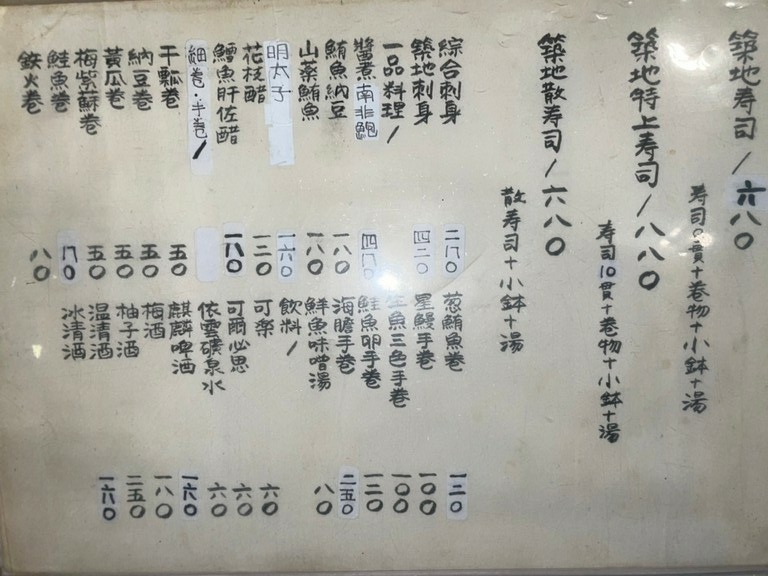 築地寿司/六八〇
寿司貫+巻物+小鉢+湯
築地特上寿司/八八〇
寿司10貫+巻物+小鉢+湯
築地散寿司/六八〇
散寿司+小鉢+湯
綜合刺身 二八〇
築地刺身 四二〇
一品料理/
醬煮南非鮑 四八〇
鮪魚納豆 一八〇
山藥鮪魚 一八〇
明太子 一六〇
花枝醋 一二〇
鱈魚肝佐醋 一八〇
細巻・手巻/
干瓢巻 五〇
納豆巻 五〇
黃瓜巻 五〇
梅紫蘇巻 五〇
鮭魚巻 八〇
鉄火巻 八〇
蔥鮪魚巻 一二〇
星鰻手巻 一〇〇
生魚三色手巻 一〇〇
鮭魚卵手巻 一二〇
海膽手巻 二五〇
鮮魚味噌湯 八〇
飲料/
可樂 六〇
可爾必思 六〇
依雲礦泉水 六〇
麒麟啤酒 一六〇
梅酒 一八〇
柚子酒 二五〇
温清酒 一六〇
冰清酒